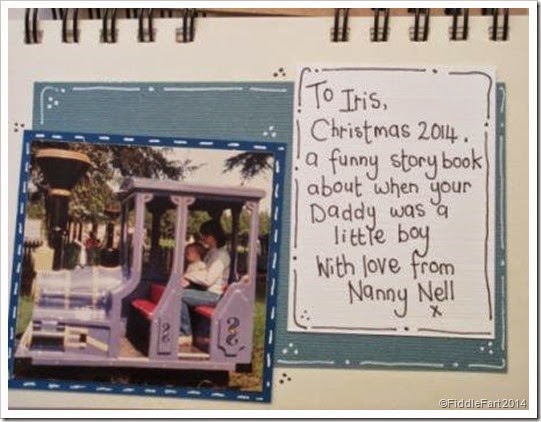 To Iris,
Christmas 2014.
a funny story book
about when your
Daddy was a
little boy
With love from
Nanny Nell
x
©FiddleFart2014